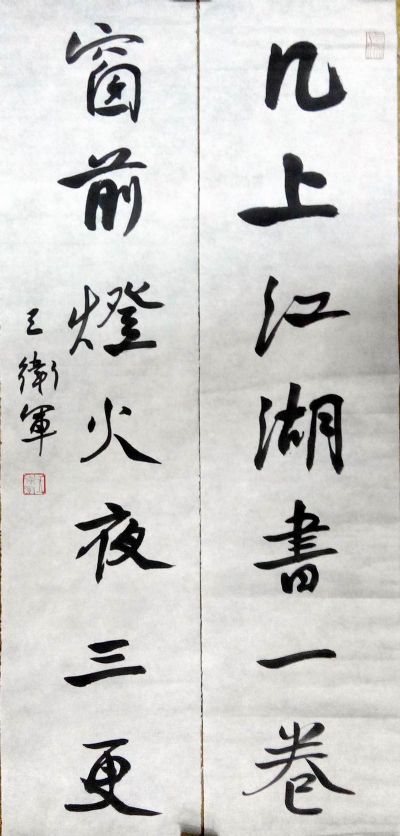 几上江湖書一卷
窗前燈火夜三更
王衛軍